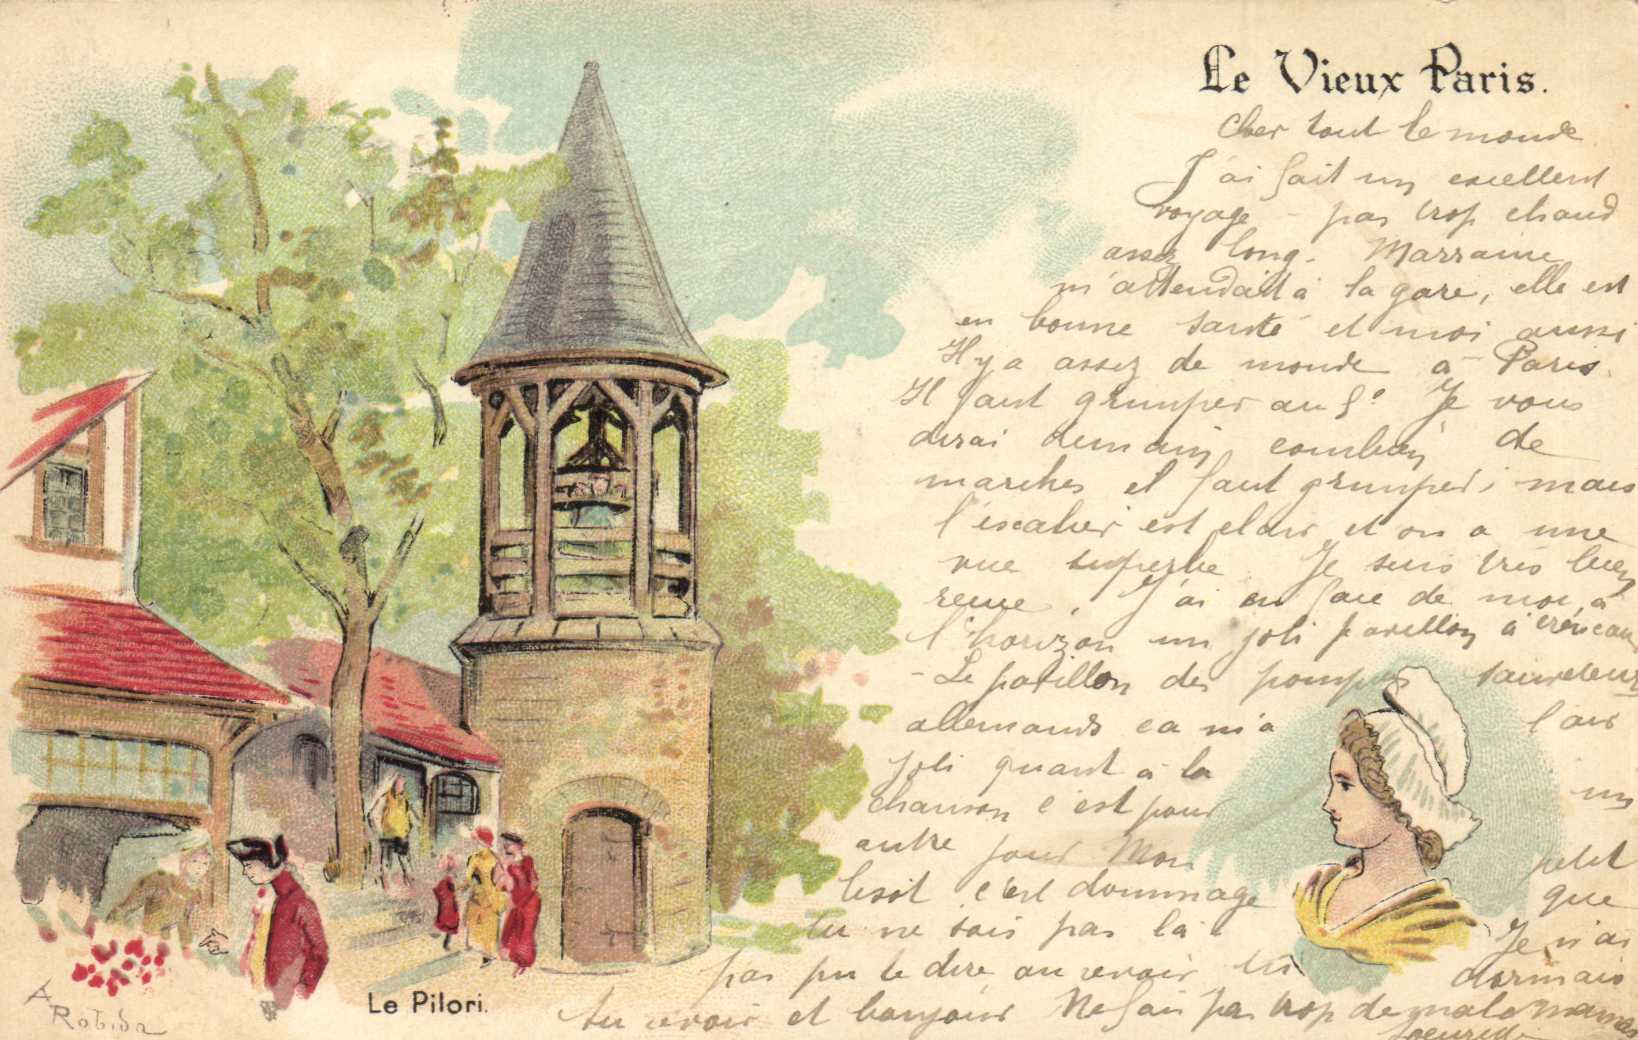 Le Vieux Paris.
Cher tout le monde
J'ai fait un excellent
voyage - pas trop chaud
assez long. Marraine
m'attendait à la gare, elle est
en bonne santé et moi aussi
Il y a assez de monde à Paris.
Il faut grimper au 5e Je vous
dirai demain combien de
marches il faut grimper; mais
l'escalier est clair et on a une
vue superbe Je suis très bien
J'ai en face de moi, à
l'horizon un joli pavillon à
- Le pavillon des pompes
allemands ca m'a l'air
joli quant à la
chanson c'est pour un
autre jour Mon petit
c'est dommage que
tu ne sois pas là Je n'ai
pas pu te dire au revoir tu dormais
Au revoir et bonjour Ne fais pas trop de mal à maman
Le Pilori.
A Robida